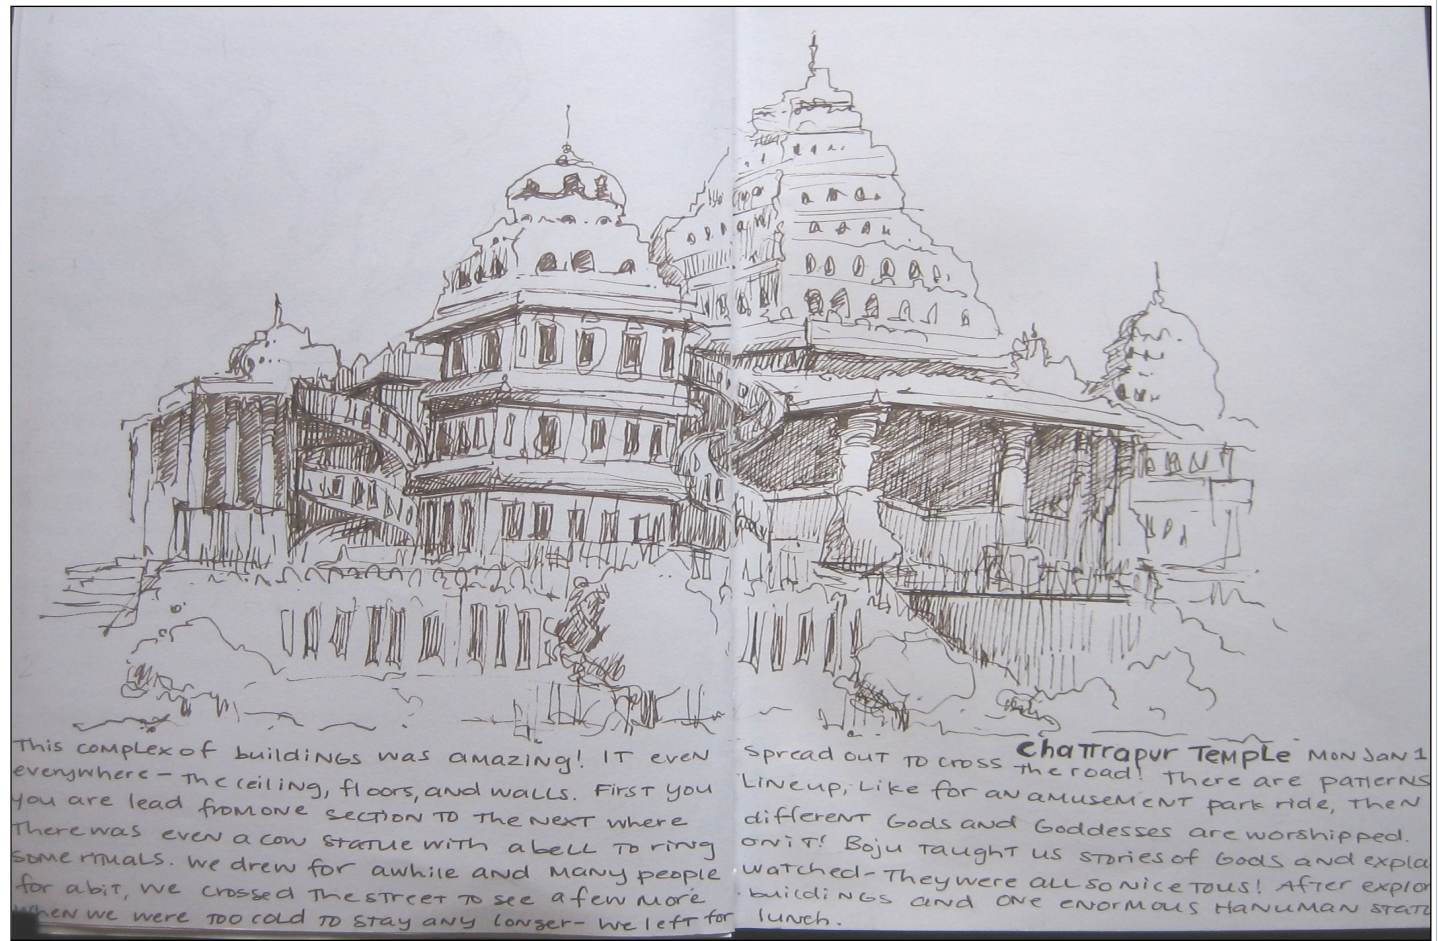 Chattrapur Temple Mon Jan 1
This complex of buildings was amazing! It even spread out to cross the road! There are patterns
everywhere – the ceiling, floors, and walls. First you lineup, like for an amusement park ride, then
you are lead from one section to the next where different Gods and Goddesses are worshipped.
There was even a cow statue with a bell to ring on it! Boju taught us stories of Gods and expla
some rituals. We drew for awhile and many people watched – They were all so nice to us! After explor
for a bit, we crossed the street to see a few more buildings and one enormous Hanuman statu
When we were too cold to stay any longer – we left for lunch.